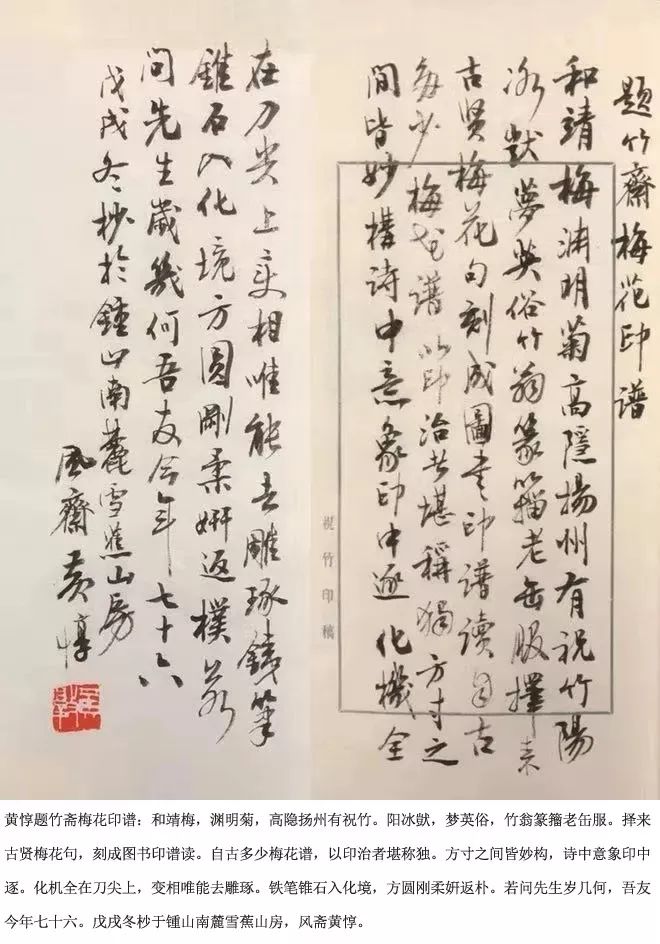 題竹齋梅花印譜
和靖梅渊明菊高隱揚州有祝竹陽
冰猷夢英俗竹翁篆籀老缶服擇来
古贤梅花句刻成圖書印譜读自古
多少梅花譜以印治者堪稱獨方寸之
間皆妙構诗中意象印中逐化機全
祝竹印稿
在刀尖上变相唯能去雕琢鐵筆
錐石入化境方圆剛柔妍返樸若
问先生歲幾何吾友今年七十六
戊戌冬杪於鍾山南麓雪蕉山房
風齋黄惇
黄惇题竹斋梅花印谱：和靖梅，渊明菊，高隐扬州有祝竹。阳冰猷，梦英俗，竹翁篆籀老缶服。择来
古贤梅花句，刻成图书印谱读。自古多少梅花谱，以印治者堪称独。方寸之间皆妙构，诗中意象印中
逐。化机全在刀尖上，变相唯能去雕琢。铁笔锥石入化境，方圆刚柔妍返朴。若问先生岁几何，吾友
今年七十六。戊戌冬杪于锺山南麓雪蕉山房，风斋黄惇。